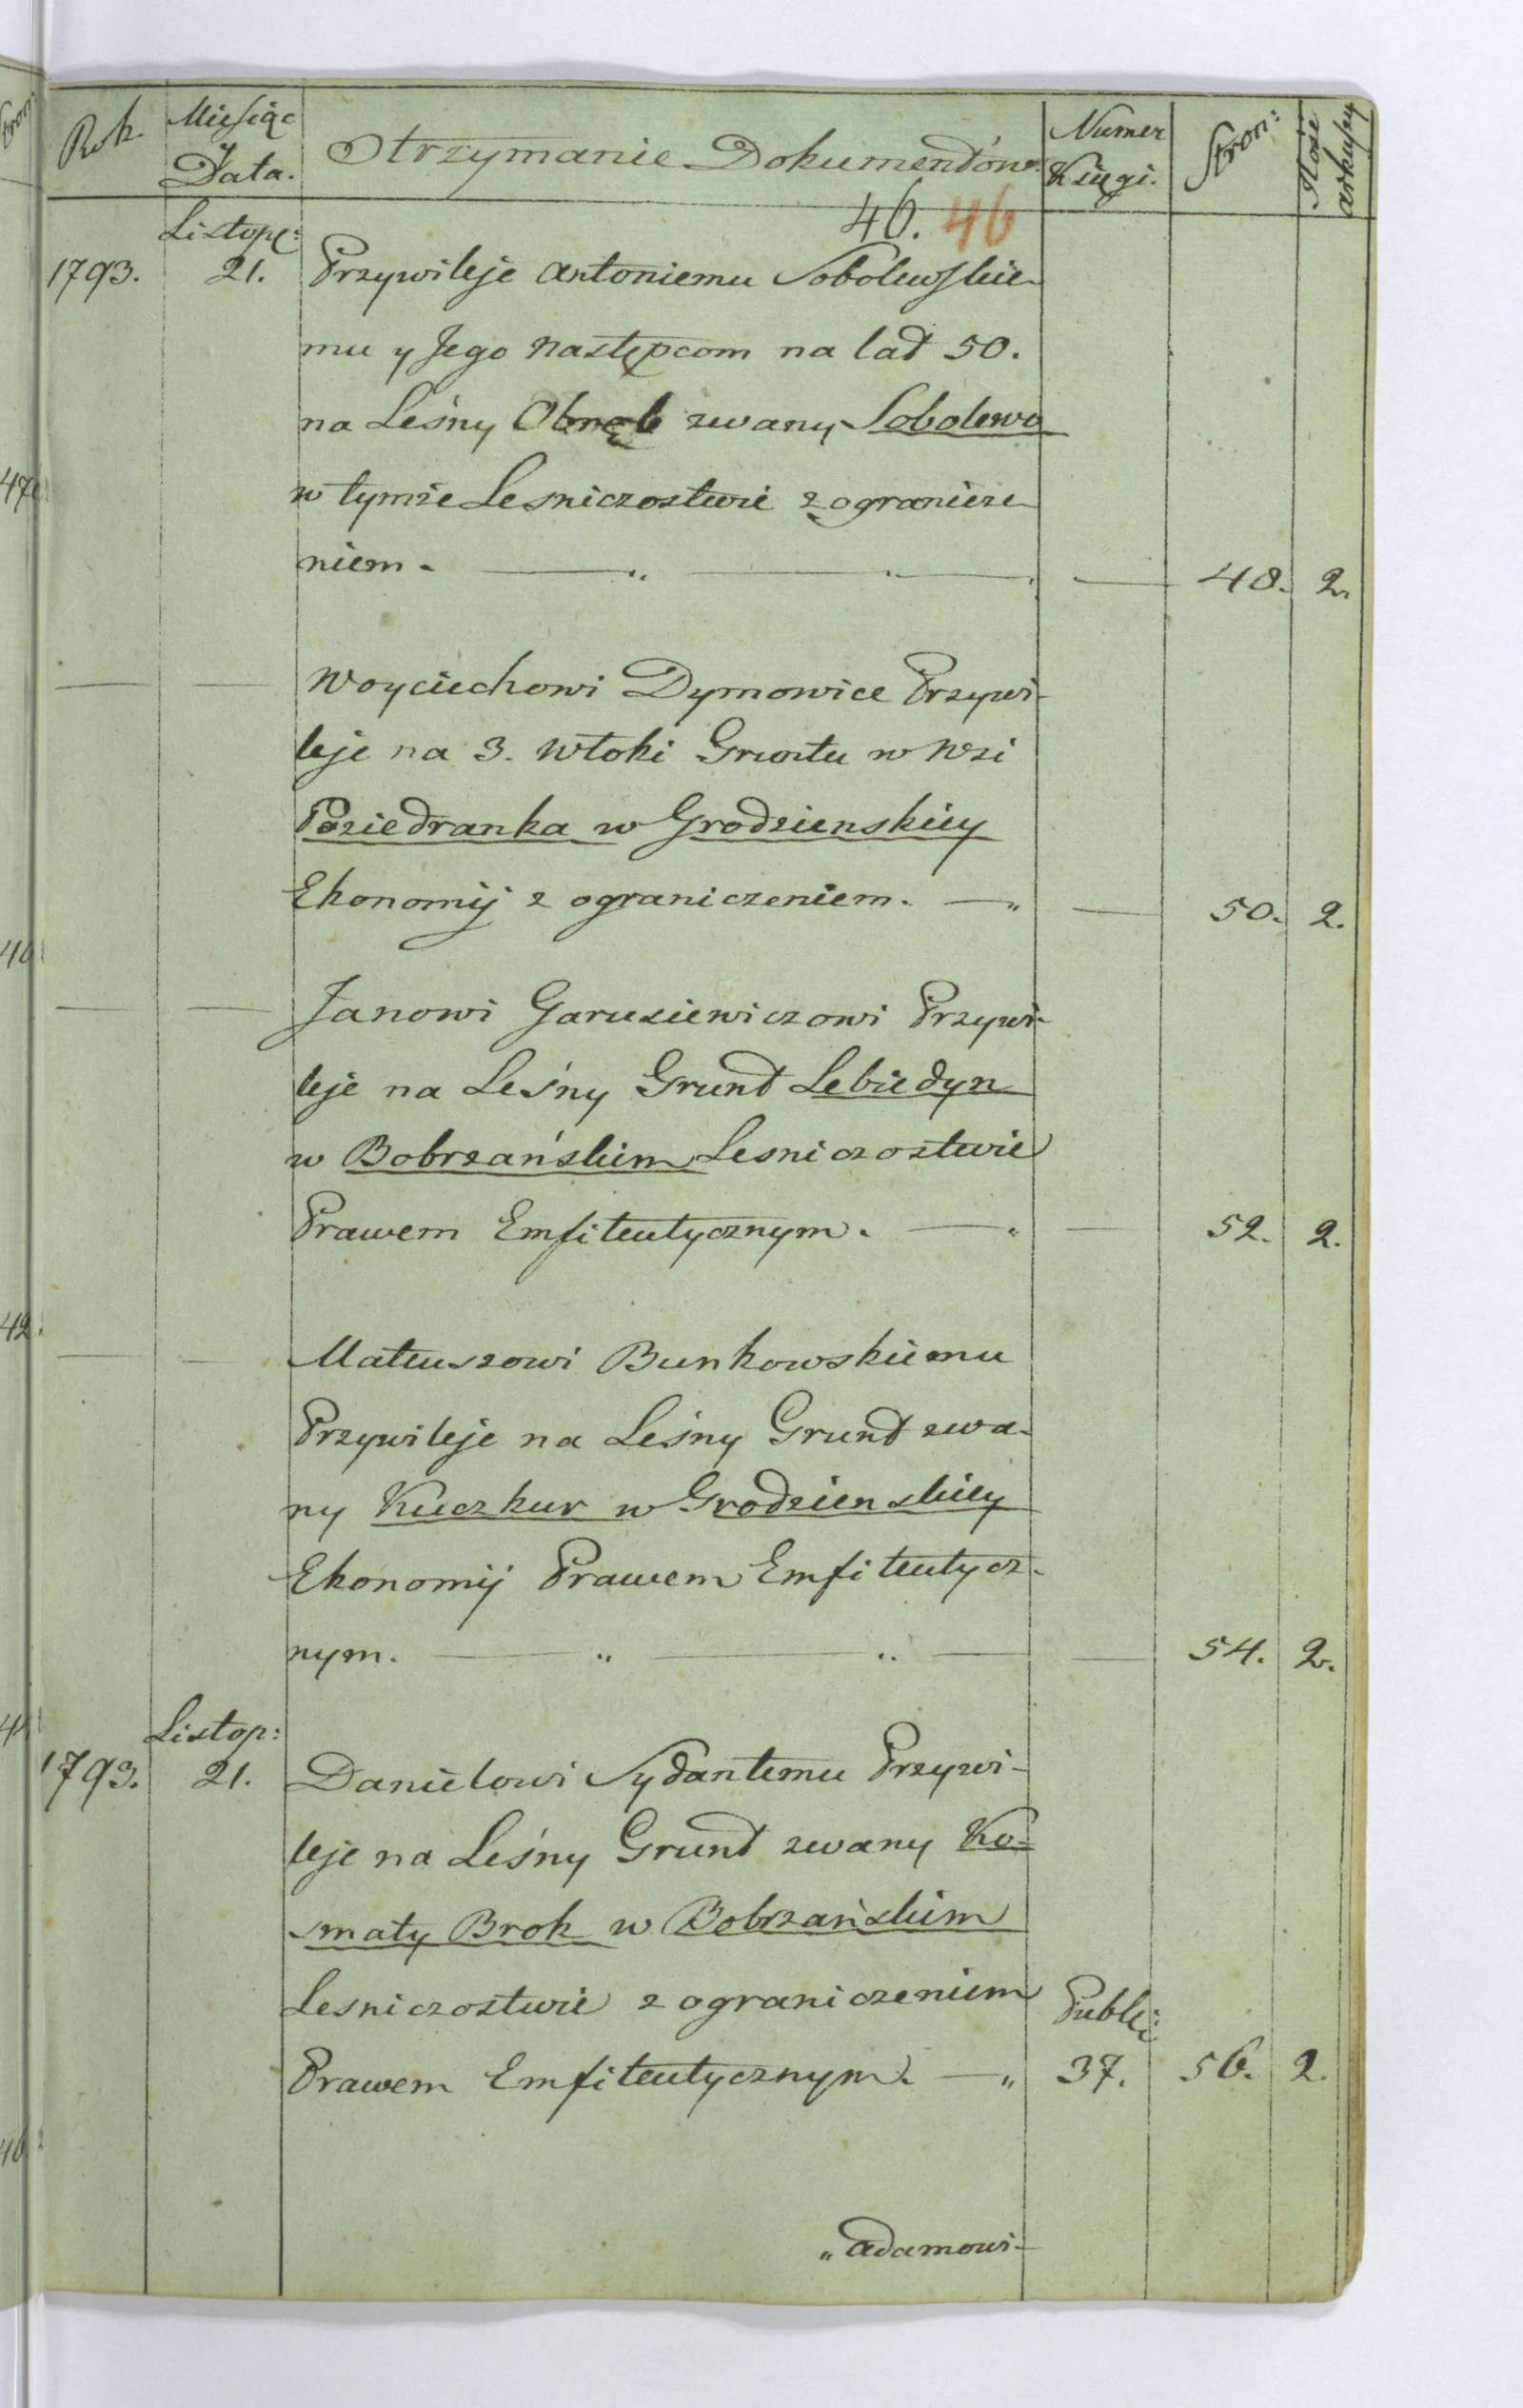 Rok. Miesiąc Otrzymanie Dokumentów. Numer Stron: Ilość
Data. Księgi. arkuszy
46. 46
Listop:
1793. 21. Przywileje Antoniemu Sobolewskie-
mu y Jego Następcom na lat 50.
na Leśny Obręb zwany Sobolewo
w tymże Lesniczostwie z ogranicze-
niem. 48. 2.
Woyciechowi Dymowice Przywi-
leje na 3. Włoki Gruntu w Wsi
Poziedranka w Grodzienskiey
Ekonomij z ograniczeniem. 50. 2.
Janowi Garusiewiczowi Przywi-
leje na Leśny Grunt Lebiedyn
w Bobrzańskim Lesniczostwie
Prawem Emfiteutycznym. 52. 2.
Mateuszowi Bunkowskiemu
Przywileje na Leśny Grunt zwa-
ny Kuczkur w Grodzienskiey
Ekonomij Prawem Emfiteutycz-
nym. 54. 2.
Listop:
1793. 21. Danielowi Sydantemu Przywi-
leje na Leśny Grunt zwany Ko-
smaty Brok w Bobrzańskim
Lesniczostwie z ograniczeniem Publi:
Prawem Emfiteutycznym. 37. 56. 2.
„Adamowi-